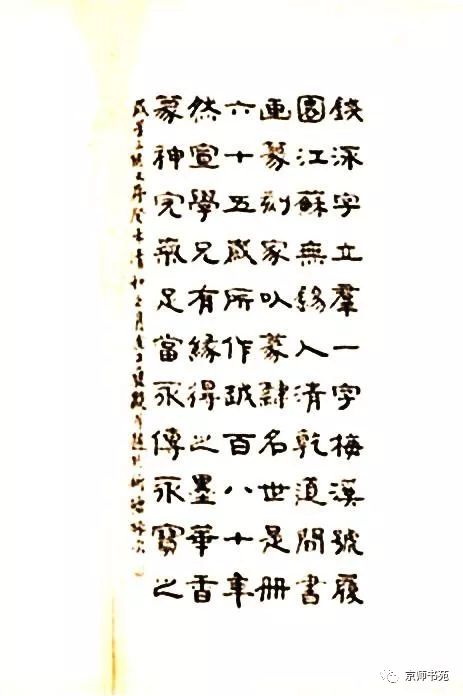 錢泳字立羣一字梅溪號履
園江蘇無錫人清乾道間書
畫篆刻家以篆隸名世是冊
六十五歲所作越百八十年
然宣學兄有緣得之墨華香
篆神完氣足當永傳永寶之
京师书苑